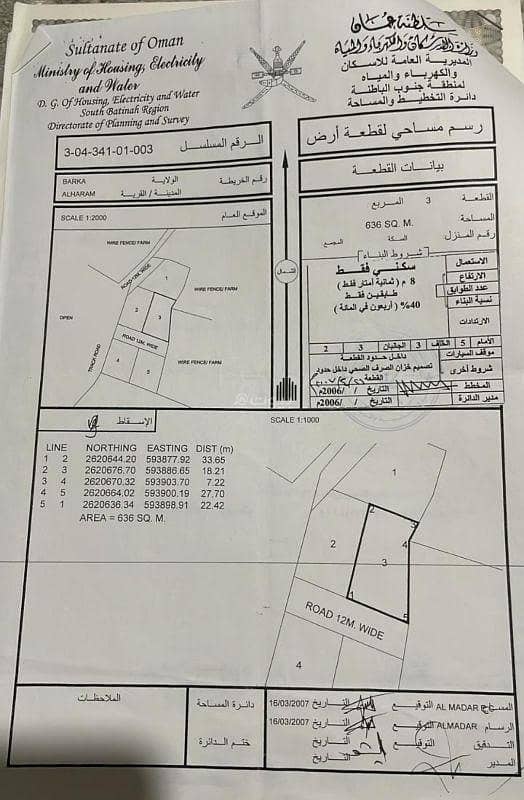 Sultanate of Oman
Ministry of Housing, Electricity
and Water
D. G. Of Housing, Electricity and Water
South Batinah Region
Directorate of Planning and Survey
سلطنة عمان
وزارة الإسكان والكهرباء والمياه
المديرية العامة للاسكان
والكهرباء والمياه
لمنطقة جنوب الباطنة
دائرة التخطيط والمساحة
3-04-341-01-003 الرقم المسلسل
رسم مساحي لقطعة أرض
BARKA الولاية رقم الخريطة
ALHARAM المدينة / القرية
بيانات القطعة
SCALE 1:2000 الموقع العام
WIRE FENCE/ FARM
ROAD 12M. WIDE
1
WIRE FENCE/ FARM
OPEN
2
3
ROAD 12M. WIDE
TRACK ROAD
4
5
WIRE FENCE/ FARM
الشمال
القطعة 3 المربع
المساحة 636 SQ. M.
رقم المنزل السكة المجمع
شروط البناء
الاستعمال سكني فقط
الارتفاع 8 م ( ثمانية أمتار فقط )
عدد الطوابق طابقين فقط
نسبة البناء 40% ( أربعون في المائة )
الارتدادات
الأمام 5 الخلف 3 الجانبان 3 2
موقف السيارات داخل حدود القطعة
شروط أخرى تصميم خزان الصرف الصحي داخل حدود
القطعة
المخطط التاريخ / /2006م
مدير الدائرة التاريخ / /2006م
الإسقاط
SCALE 1:1000
LINE NORTHING EASTING DIST (m)
1 2 2620644.20 593877.92 33.65
2 3 2620676.70 593886.65 18.21
3 4 2620670.32 593903.70 7.22
4 5 2620664.02 593900.19 27.70
5 1 2620636.34 593898.91 22.42
AREA = 636 SQ. M.
1
2
3
4
2
3
1
5
ROAD 12M. WIDE
4
الملاحظات
دائرة المساحة
ختم الدائرة
المساح AL MADAR التوقيع التاريخ 16/03/2007
الرسام ALMADAR التوقيع التاريخ 16/03/2007
التدقيق التوقيع التاريخ
المدير التاريخ